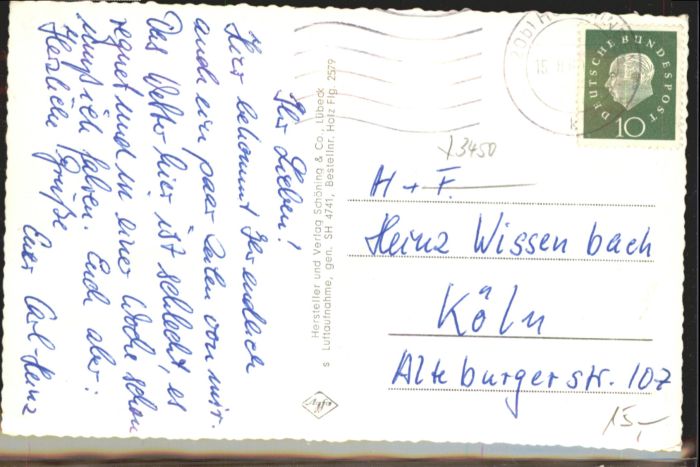 Ihr Lieben!
Hier bekommt Ihr endlich
auch ein paar Zeilen von mir.
Das Wetter hier ist schlecht, es
regnet und in einer Woche schon
muß ich fahren. Euch aber:
Herzliche Grüße
Euer Carl-Heinz
Hersteller und Verlag Schöning & Co., Lübeck
s Luftaufnahme, gen. SH 4741, Bestellnr. Holz Flg. 2579
Agfa
DEUTSCHE BUNDESPOST
10
3450
H + F.
Heinz Wissenbach
Köln
Alteburgerstr. 107
15,-